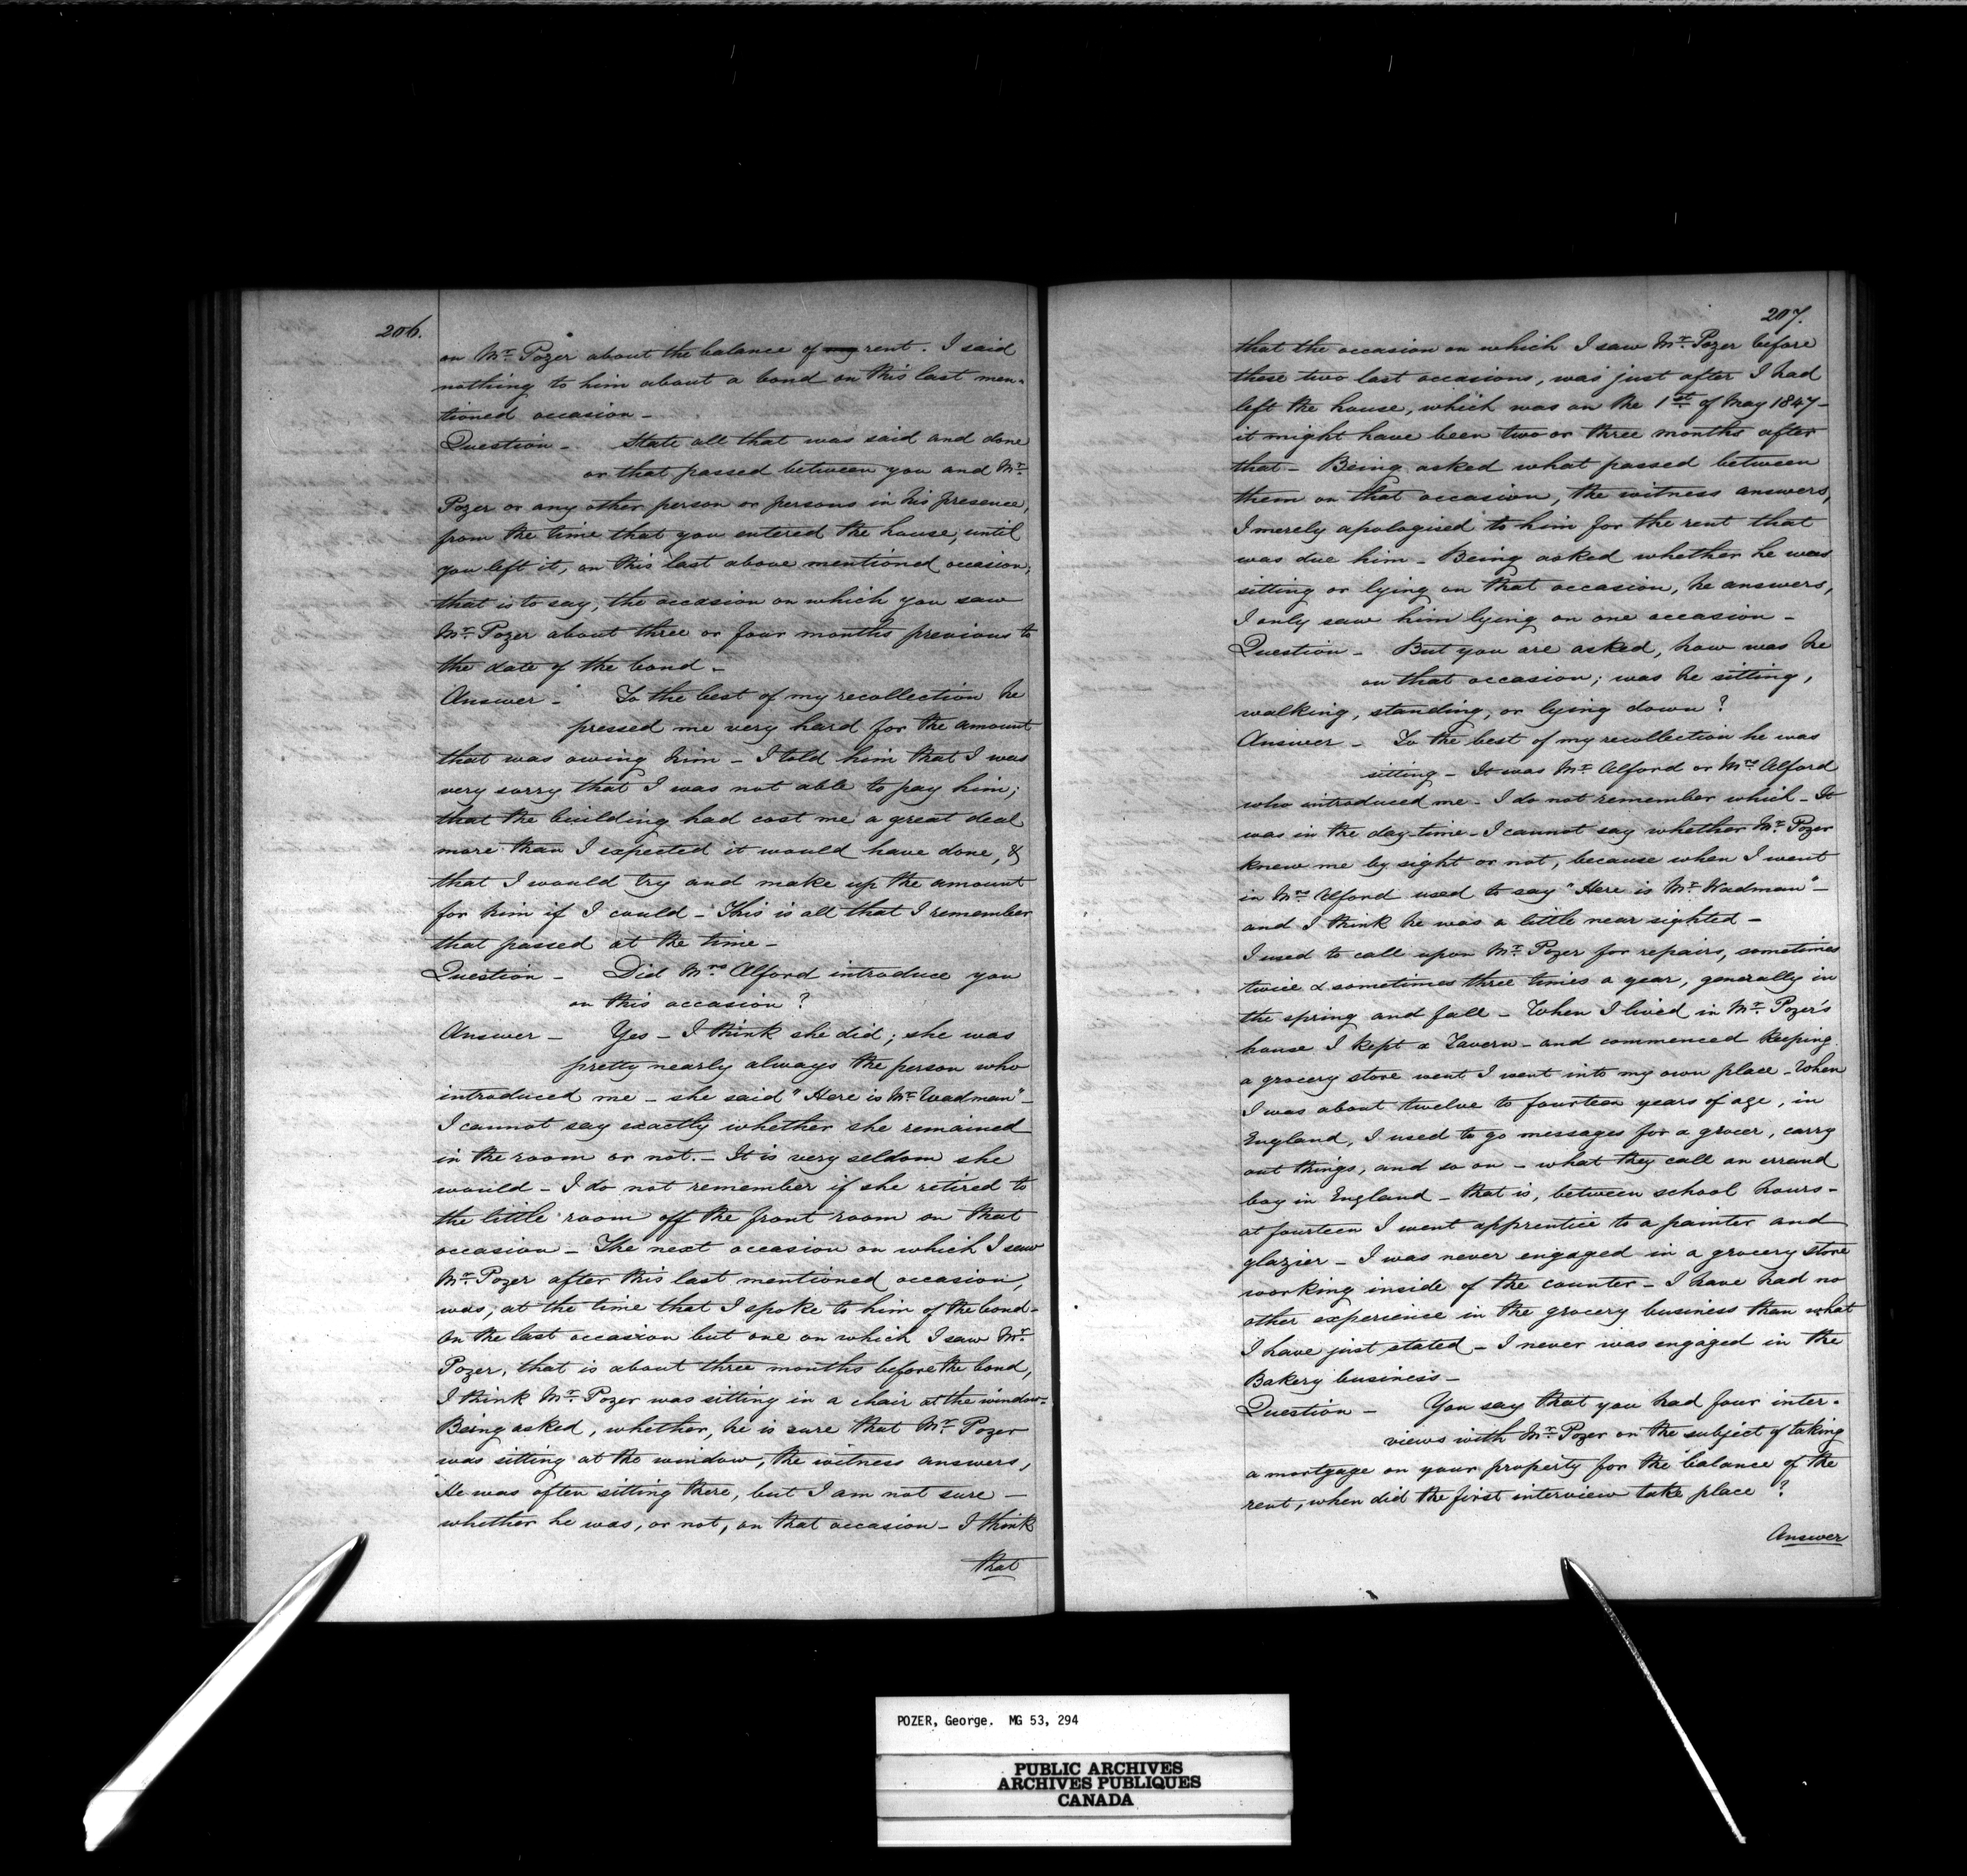 206.
on Mr. Pozer about the balance of my rent. I said
nothing to him about a bond on this last men-
tioned occasion -
Question - State all that was said and done
or that passed between you and Mr.
Pozer or any other person or persons in his presence,
from the time that you entered the house, until
you left it, on this last above mentioned occasion,
that is to say, the occasion on which you saw
Mr. Pozer about three or four months previous to
the date of the bond -
Answer - To the best of my recollection he
pressed me very hard for the amount
that was owing him - I told him that I was
very sorry that I was not able to pay him;
that the building had cost me a great deal
more than I expected it would have done, &
that I would try and make up the amount
for him if I could - This is all that I remember
that passed at the time -
Question - Did Mrs Alford introduce you
on this occasion?
Answer - Yes - I think she did; she was
pretty nearly always the person who
introduced me - she said "Here is Mr. Wadman" -
I cannot say exactly whether she remained
in the room or not. - It is very seldom she
would - I do not remember if she retired to
the little room off the front room on that
occasion - The next occasion on which I saw
Mr. Pozer after this last mentioned occasion,
was, at the time that I spoke to him of the bond -
On the last occasion but one on which I saw Mr.
Pozer, that is about three months before the bond,
I think Mr. Pozer was sitting in a chair at the window -
Being asked, whether, he is sure that Mr. Pozer
was sitting at the window, the witness answers,
He was often sitting there, but I am not sure -
whether he was, or not, on that occasion - I think
that
207.
that the occasion on which I saw Mr. Pozer before
these two last occasions, was just after I had
left the house, which was on the 1st of May 1847 -
it might have been two or three months after
that - Being asked what passed between
them on that occasion, the witness answers,
I merely apologised to him for the rent that
was due him - Being asked whether he was
sitting or lying on that occasion, he answers,
I only saw him lying on one occasion -
Question - But you are asked, how was he
on that occasion; was he sitting,
walking, standing, or lying down?
Answer - To the best of my recollection he was
sitting - It was Mr. Alford or Mrs Alford
who introduced me - I do not remember which - It
was in the day-time - I cannot say whether Mr. Pozer
knew me by sight or not, because when I went
in Mrs Alford used to say "Here is Mr. Wadman" -
and I think he was a little near sighted -
I used to call upon Mr. Pozer for repairs, sometimes
twice & sometimes three times a year, generally in
the spring and fall - When I lived in Mr. Pozer's
house I kept a Tavern - and commenced keeping
a grocery store went I went into my own place - When
I was about twelve to fourteen years of age, in
England, I used to go messages for a grocer, carry
out things, and so on - what they call an errand
boy in England - that is, between school hours -
at fourteen I went apprentice to a painter and
glazier - I was never engaged in a grocery store
working inside of the counter - I have had no
other experience in the grocery business than what
I have just stated - I never was engaged in the
Bakery business -
Question - You say that you had four inter-
views with Mr. Pozer on the subject of taking
a mortgage on your property for the balance of the
rent, when did the first interview take place?
Answer
POZER, George. MG 53, 294
PUBLIC ARCHIVES
ARCHIVES PUBLIQUES
CANADA